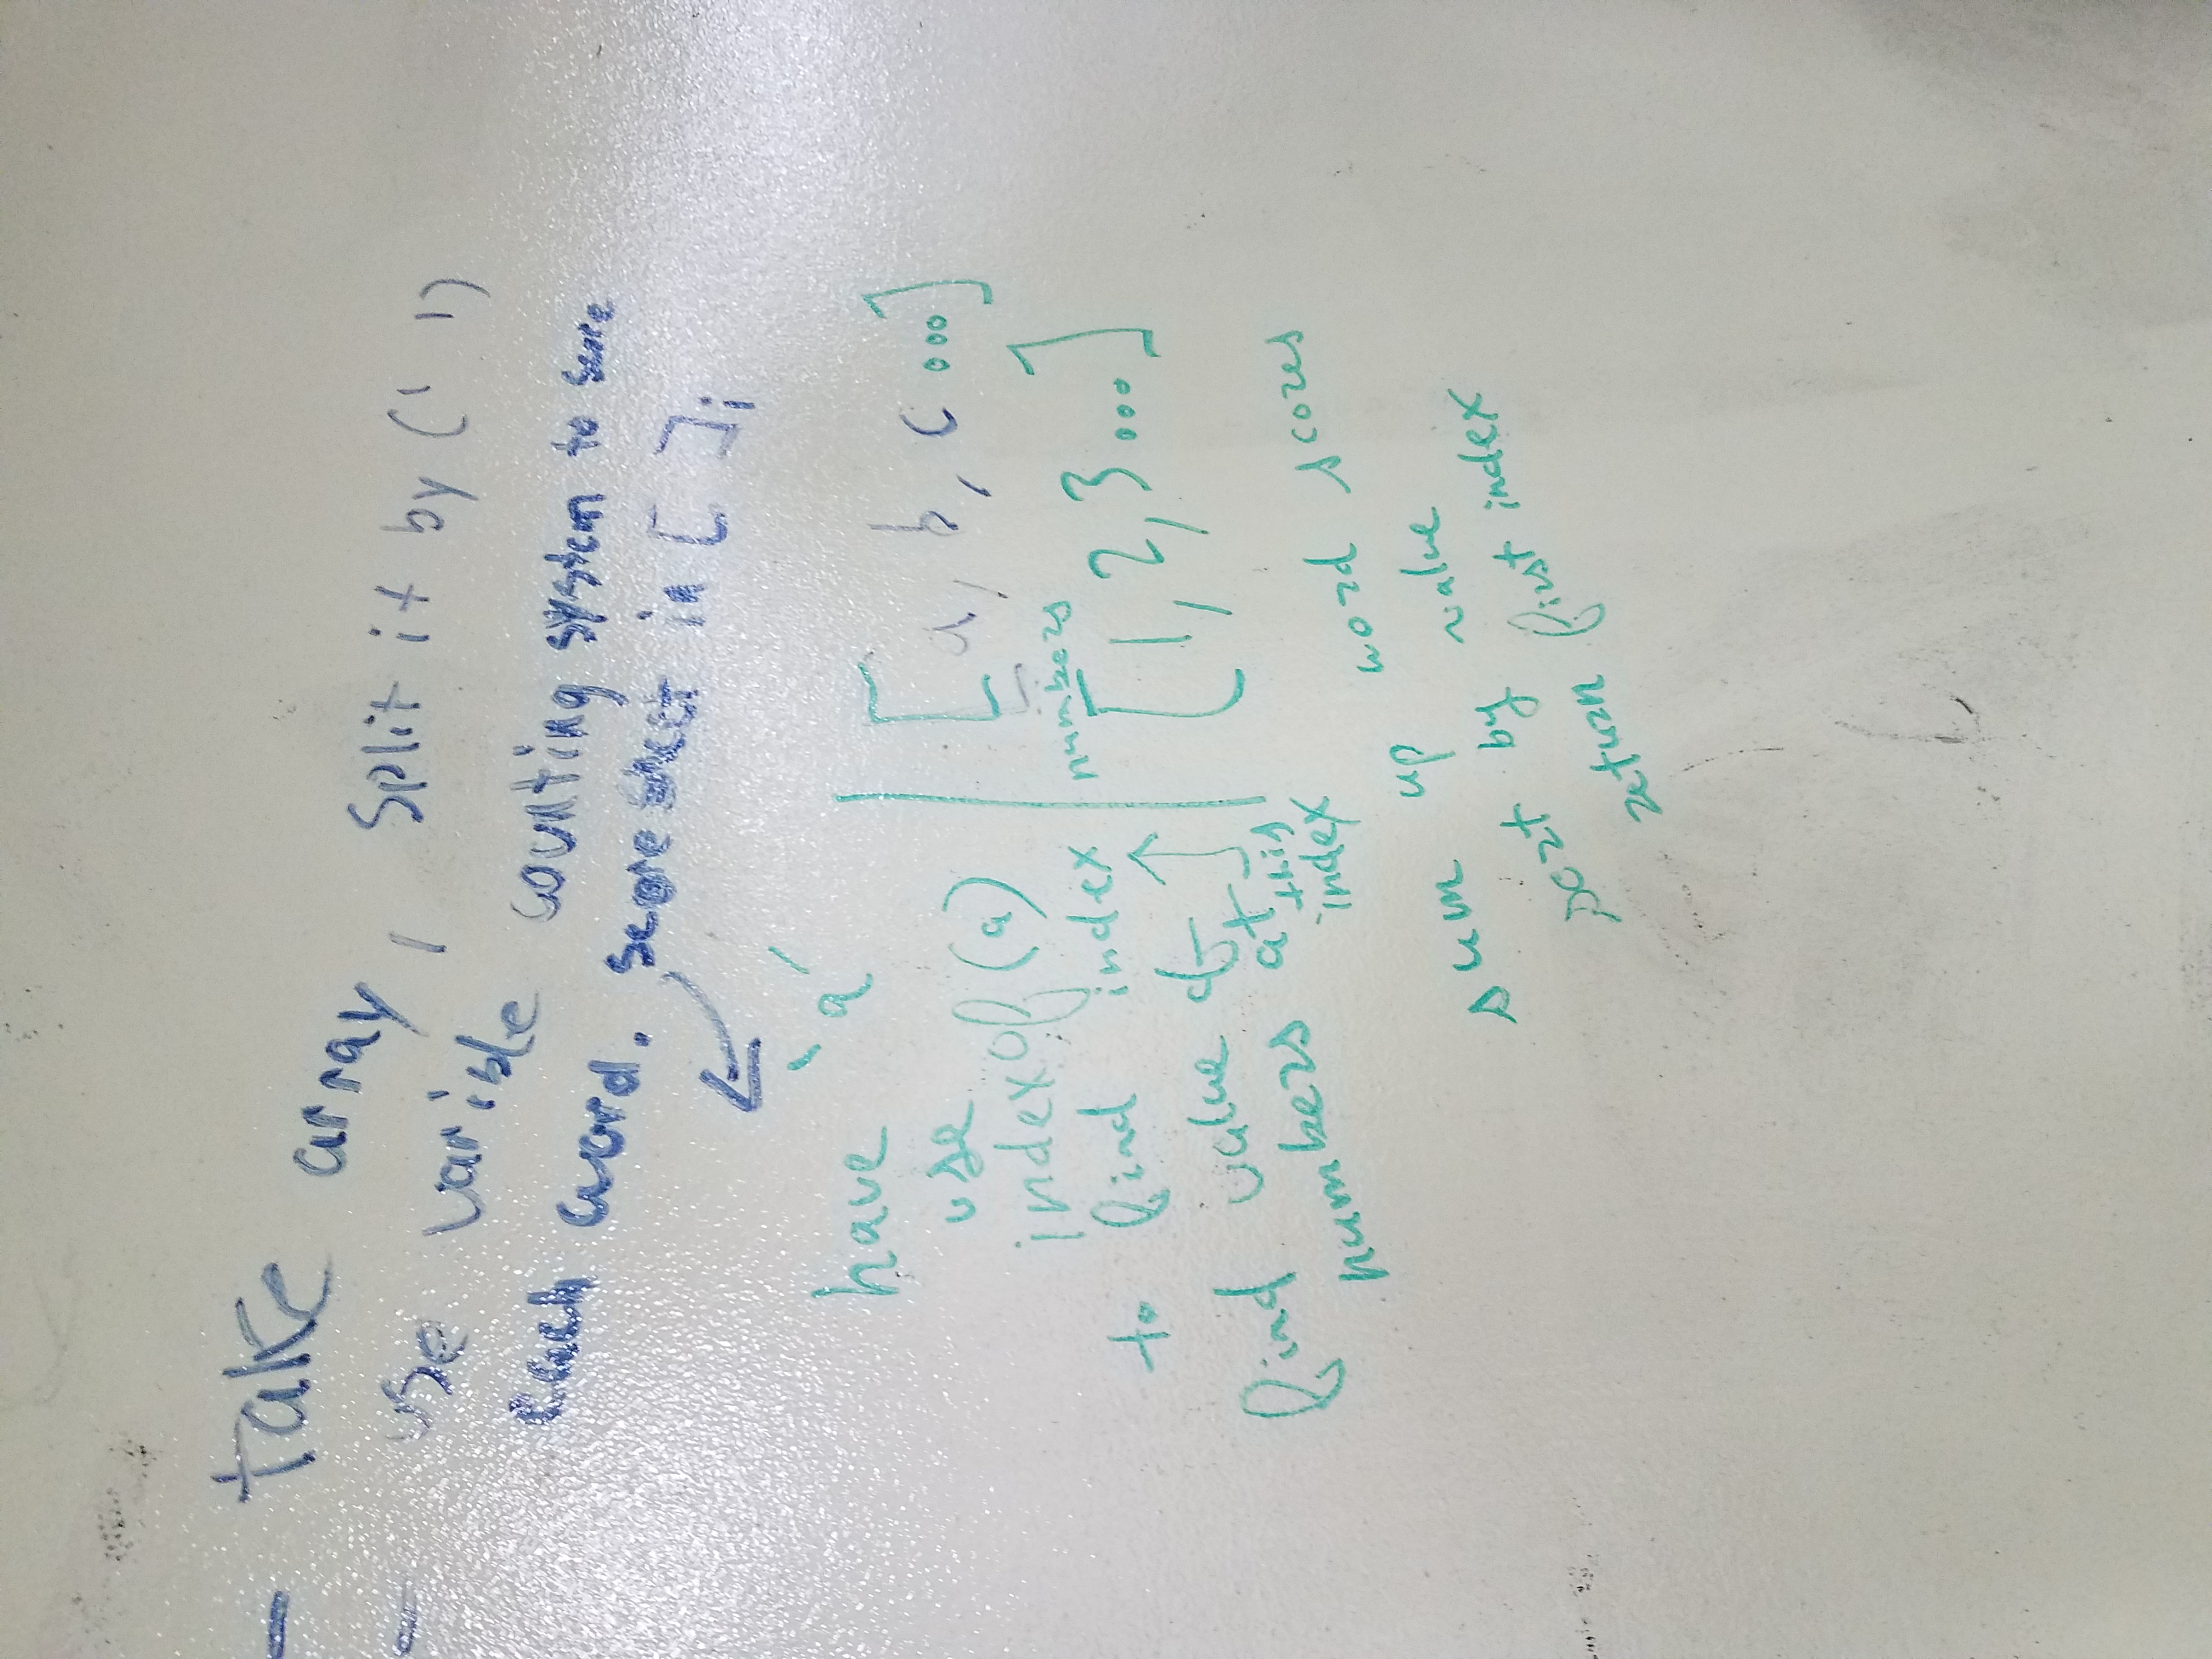 - take array, split it by (' ')
- use varible counting system to score
each word. score sheet in [ ];
have 'a'
use
indexOf(a)
to find index
find value of
numbers at this
index
[a, b, c ...]
numbers
[1, 2, 3...]
sum up word scores
sort by value
return first index